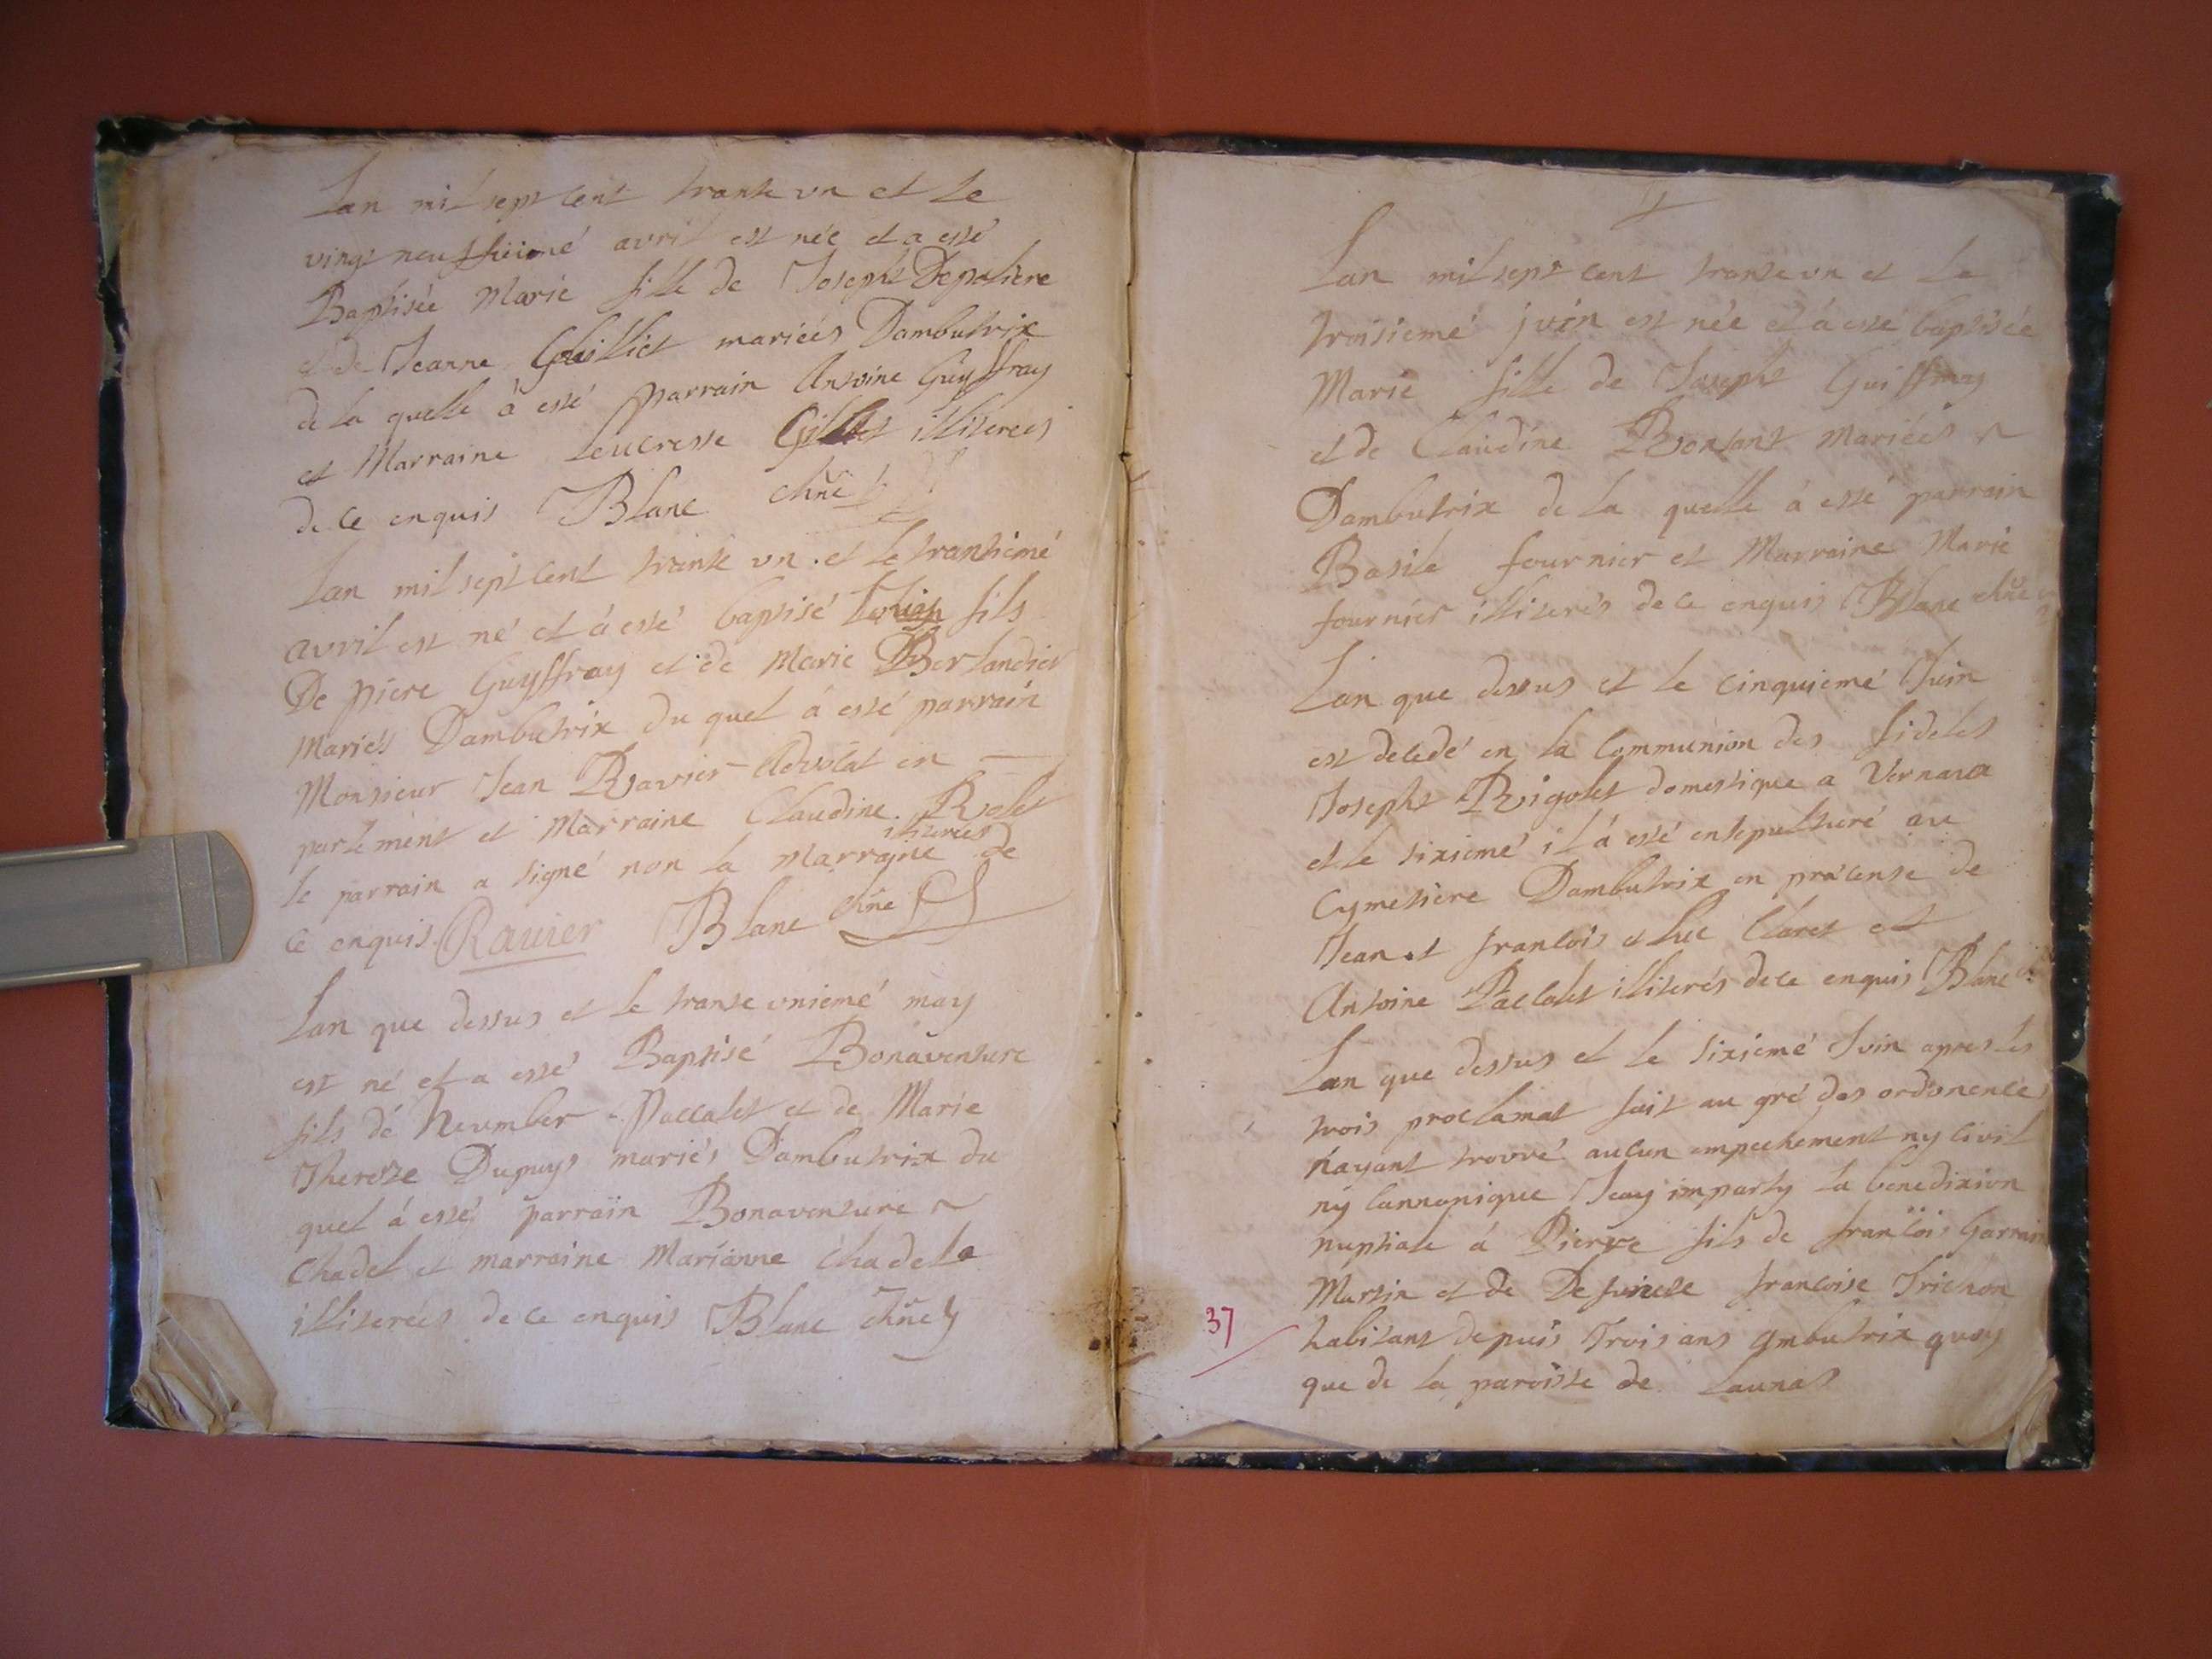 Lan mil sept cent trante un et le
vingt neufhieme avril est née et a esté
Baptisée Marie fille de Joseph Depoliere
et de Jeanne Guilliet mariées Dambutrix
de la quelle à esté parrain Antoine Guyffray
et Marraine Leucresse Gilliet illiterees
de ce enquis Blanc chñe
Lan mil sept cent trante un et le trantiemé
avril est né et á esté baptisé fils
De piere Guyffray et de Marie Berlandier
Mariés Dambutrix du quel á esté parrain
Monsieur Jean Ravier Advocat en
parlement et Marraine Claudine Rolet
le parrain a signé non la marraine illiterée de
ce enquis Ravier Blanc chñe
Lan que dessus et le trante uniemé may
est né et a esté Baptisé Bonaventure
fils dé Neumber Paccalet et de Marie
Thereze Dupuys mariés Dambutrix du
quel á esté parrain Bonaventure
Chadel et marraine Marianne Chadela
illiterées de ce enquis Blanc chñe
Lan mil sept cent trante un et le
troisiemé juin est née et á esté baptisée
Marie fille de Joseph Guiffray
et de Claudine Bontant Mariées
Dambutrix de la quelle á esté parrain
Basile fournier et Marraine Marie
fournier illiterés de ce enquis Blanc chñe
Lan que dessus et le cinquiemé Juin
est decedé en la Communion des fideles
Joseph Rigolet domestique a Vernara
et le sixiemé il á esté entepulturé au
Cymetiere Dambutrix en pracense de
Jean et francois et luc Claret et
Antoine Paccalet illiterés de ce enquis Blanc
Lan que dessus et le sixiemé Juin apres les
trois proclamat fait au gré des ordonences
nayant trouvé aucun empechement ny civil
ny cannonique Jeay imparty la benedixion
nuptiale á Pierre fils de francois Garrain
Martin et de francoise Trichon
habitant depuis Trois ans Ambutrix quoy
que de la paroisse de Launas
37